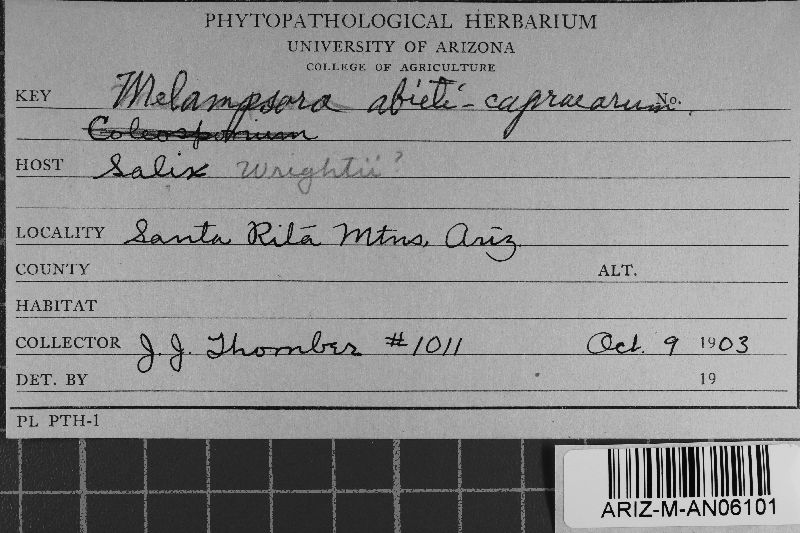 PHYTOPATHOLOGICAL HERBARIUM
UNIVERSITY OF ARIZONA
COLLEGE OF AGRICULTURE
KEY Melampsora abieti-capraearum No.
Coleosporium
HOST Salix Wrightii?
LOCALITY Santa Rita Mtns, Ariz
COUNTY ALT.
HABITAT
COLLECTOR J. J. Thornber #1011 Oct. 9 1903
DET. BY 19
PL PTH-1
ARIZ-M-AN06101